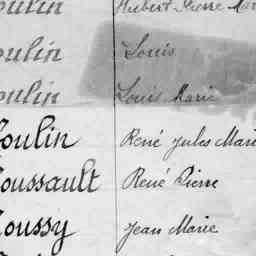 oulin Hubert Pierre Mar
oulin Louis
oulin Louis Marie
oulin René Jules Mari
oussault René Pierre
oussy Jean Marie